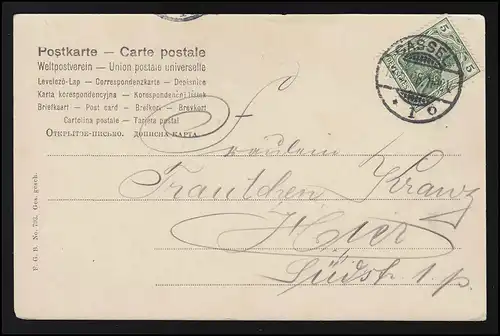 Postkarte — Carte postale
Weltpostverein — Union postale universelle
Levelező-Lap — Correspondenzkarte — Dopisnice
Karta korespondencyjna — Korespondenčni listek
Briefkaart — Post card — Brefkort — Brevkort
Cartolina postale — Tarjeta postal
Открытое письмо. Дописна карта.
CASSEL
5 5
* 1 o
Fräulein
Trautchen Kranz
Hier
Südstr. 1. p.
F. G. B. No. 702. Ges. gesch.